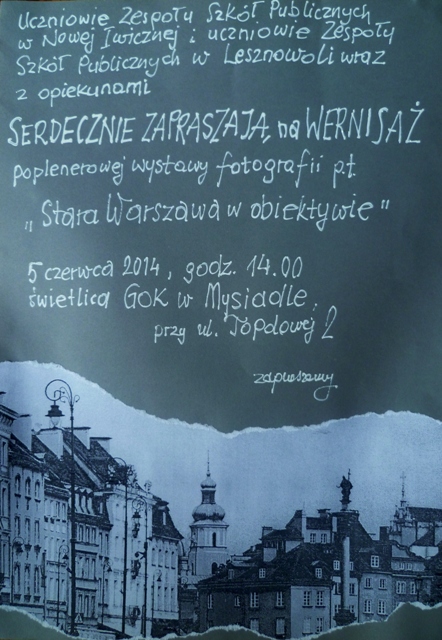 Uczniowie Zespołu Szkół Publicznych
w Nowej Iwicznej i uczniowie Zespołu
Szkół Publicznych w Lesznowoli wraz
z opiekunami
SERDECZNIE ZAPRASZAJĄ, na WERNISAŻ
poplenerowej wystawy fotografii pt.
„Stara Warszawa w obiektywie”
5 czerwca 2014, godz. 14.00
świetlica GOK w Mysiadle,
przy ul. Topolowej 2
zapraszamy